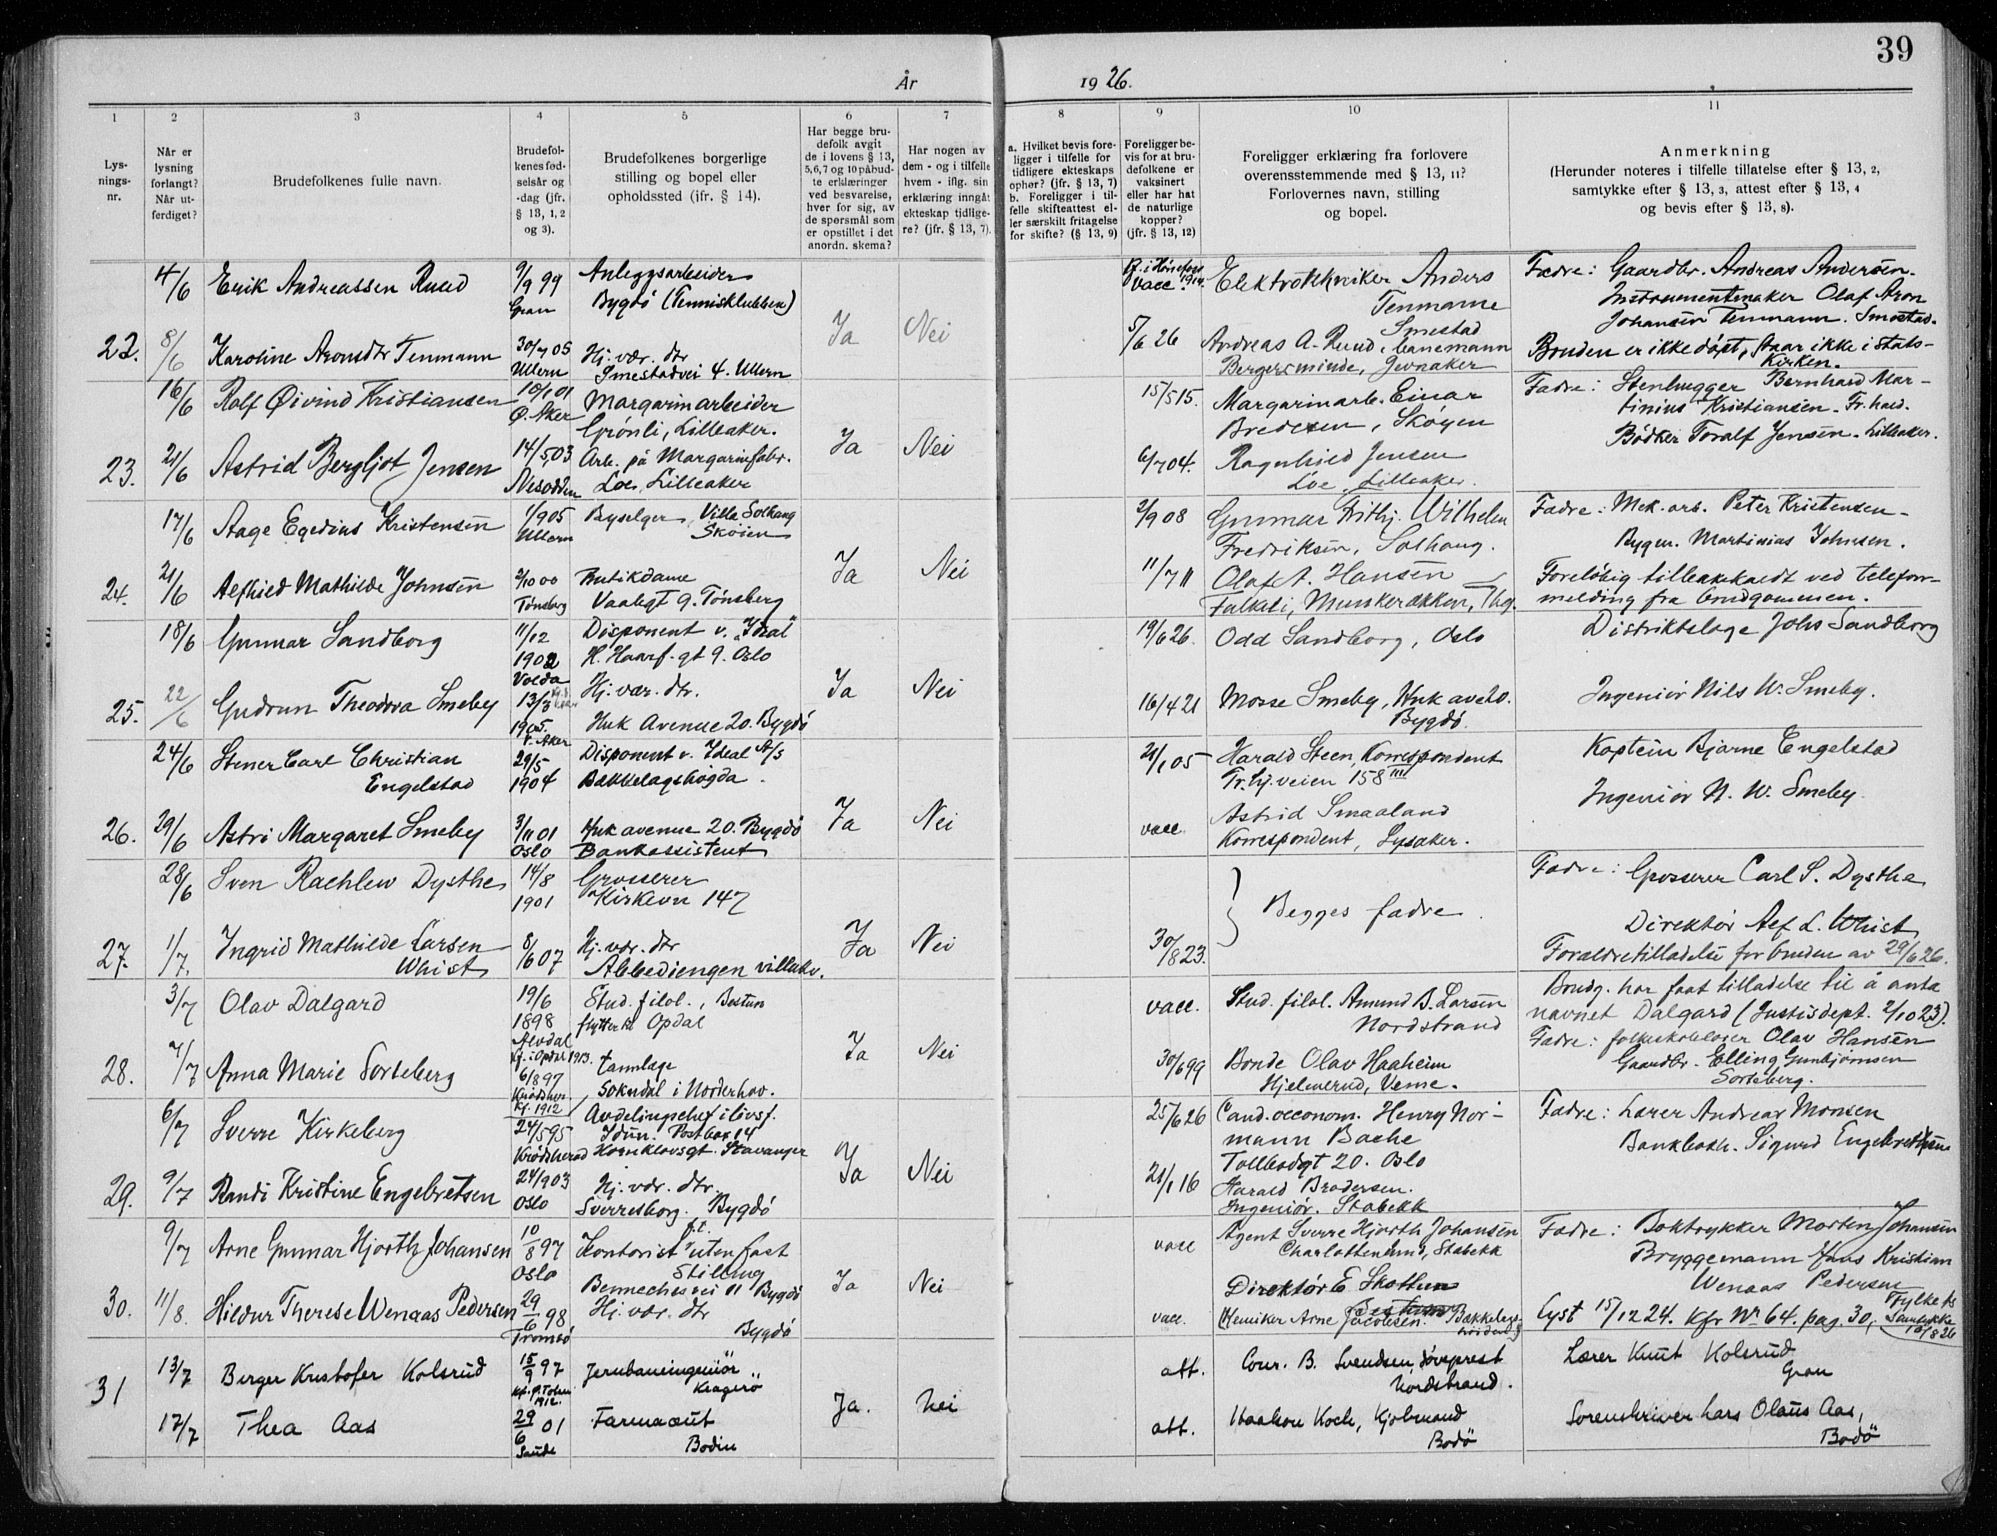 39
År 1926.
1 2 3 4 5 6 7 8 9 10 11
Lys-
nings-
nr.
Når er
lysning
forlangt?
Når ut-
ferdiget?
Brudefolkenes fulle navn.
Brudefol-
kenes fød-
selsår og
-dag (jfr.
§ 13, 1, 2
og 3).
Brudefolkenes borgerlige
stilling og bopel eller
opholdssted (ifr. § 14).
Har begge bru-
defolk avgit
de i lovens § 13,
5,6,7 og 10 påbud-
te erklæringer
ved besvarelse,
hver for sig, av
de spørsmål som
er opstillet i det
anordn. skema?
Har nogen av
dem - og i tilfelle
hvem - iflg. sin
erklæring inngåt
ekteskap tidlige-
re? (jfr. § 13, 7).
a. Hvilket bevis fore-
ligger i tilfelle for
tidligere ekteskaps
ophør? (jfr. § 13, 7)
b. Foreligger i til-
felle skifteattest el-
ler særskilt fritagelse
for skifte? (§ 13, 9)
Foreligger be-
vis for at bru-
defolkene er
vaksinert
eller har hat
de naturlige
kopper?
(jfr. § 13, 12)
Foreligger erklæring fra forlovere
overensstemmende med § 13, 11?
Forlovernes navn, stilling
og bopel.
Anmerkning
(Herunder noteres i tilfelle tillatelse efter § 13, 2,
samtykke efter § 13, 3, attest efter § 13, 4
og bevis efter § 13, 8).
22.
4/6 Erik Andreassen Ruud
9/9 99
Gran
Anleggsarbeider
Bygdö (Tennisklubben)
Ja Nei
vacc. 1914.
Elektrotekniker Anders
Tenmanne
Smestad
Fædre: Gaardbr. Andreas Andersen.
Instrumentmaker Olaf Aron
Johansen Tenmann. Smestad.
8/6 Karoline Aronsdtr Tenmann
30/7 05
Ullern
Hj. vær. dtr
Smestadvei 4. Ullern
5/6 26
Andreas A. Ruud, banemann
Bergersminde, Jevnaker
Bruden er ikke döpt, staar ikke i Stats-
Kirken.
23.
16/6 Rolf Øivind Kristiansen
10/1 01
Ø. Aker
Margarinarbeider
Grönli, Lilleaker.
Ja Nei
15/5 15.
Margarinarb. Einar
Bredesen, Skøyen
Fædre: Stenhugger Bernhard Mar-
tinius Kristiansen. Fr.hald.
Bødker Toralf Jensen. Lilleaker.
21/6 Astrid Bergljot Jensen
14/5 03
Nesodden
Arb. på Margarinfabr.
Loe, Lilleaker
6/7 04.
Ragnhild Jensen
Loe, Lilleaker.
24.
17/6 Aage Egedius Kristensen
1/9 05
Ullern
Byselger, Villa Solhaug
Skøien
Ja Nei
2/9 08
Gunnar Frithj. Wilhelm
Fredriksen, Solhaug.
Fædre: Mek. arb. Peter Kristensen-
Bygm. Martinius Johnsen.
21/6 Alfhild Mathilde Johnsen
2/10 00
Tönsberg
Butikdame
Vaalegt 9. Tönsberg
11/7 11
Olaf A. Hansen
Munkerækken, Tbg.
Foreløbig tilbakekaldt ved telefon-
melding fra brudgommen.
25.
18/6 Gunnar Sandborg
11/12
1902
Volda
Disponent v. "Ideal"
H. Haarf. gt 9. Oslo
Ja Nei
19/6 26.
Odd Sandborg, Oslo
Distriktslæge Johs Sandborg
22/6 Gudrun Theodora Smeby
13/3
1905.
V. Aker
Hj. vær. dtr.
Huk Avenue 20. Bygdö
16/4 21
Mosse Smeby, Huk ave 20.
Bygdö.
Ingeniör Nils W. Smeby.
26.
24/6 Stener Carl Christian
Engelstad
29/5
1904
Disponent v. Ideal A/S
Bækkelagshøgda.
Ja Nei
21/1 05
Harald Steen, Korrespondent
Tr.hj.veien 158 III
Kaptein Bjarne Engelstad
29/6 Astri Margaret Smeby
3/11 01
Oslo
Huk avenue 20. Bygdö
Bankassistent
vacc.
Astrid Smaaland
Korrespondent, Lysaker.
Ingeniör N. W. Smeby.
27.
28/6 Sven Rachlew Dysthe
14/8
1901
Grosserer
Kirkevn 147
Ja Nei
Begges fædre.
Fædre: Grosserer Carl S. Dysthe
1/7. Ingrid Mathilde Larsen
Whist
8/6 07
Hj. vær. dtr
Abbediengen villabv.
30/8 23.
Direktör Alf L. Whist
Forældretilladelse for bruden av 29/6 26.
28.
3/7 Olav Dalgard
19/6
1898
Alvdal
Kf. i Opdal 1913.
Stud. filol., Bestun
flytter til Opdal
Ja Nei
vacc.
Stud. filol. Amund B. Larsen
Nordstrand
Brudg. har faat tilladelse til å anta
navnet Dalgard (Justisdept. 2/10 23).
Fædre: folkeskolelærer Olav Hansen
7/7 Anna Marie Sorteberg
6/8 97
Krødsher.
Kf. 1912
tannlæge
Sokndal i Norderhov.
30/6 99
Bonde Olav Haaheim
Hjelmerud, Veme.
Gaardbr. Elling Gunbjørnsen
Sorteberg.
29.
6/7 Sverre Kirkeberg
24/5 95
Krødsherad
Avdelingschef i livsf.
Idun. Postbox 14
Hornklovsgt. Stavanger
Ja Nei
25/6 26
Cand. oeconom. Henry Nor-
mann Bache
Tollbodgt 20. Oslo
Fædre: Lærer Andreas Monsen
Bankbokh. Sigurd Engebretsen
9/7 Randi Kristine Engebretsen
24/9 03
Oslo
Hj. vær. dtr.
Sverresborg. Bygdö
21/1 16
Harald Brodersen.
Ingeniör. Stabekk
30.
9/7 Arne Gunnar Hjorth Johansen
10/8 97
Oslo
Kontorist f.t. uten fast
Stilling
Bennechesvei 11 Bygdö
Ja Nei
vacc
Agent Sverre Hjorth Johansen
Charlottenlund, Stabekk
Fædre: Boktrykker Morten Johansen
Bryggemann Hans Kristian
Wenaas Pedersen
11/8. Hildur Therese Wenaas Pedersen
29/6 98
Tromsö
Hj. vær. dtr
Bygdö
vacc.
Direktör E Skothun
Bestum
Kemiker Arne Jacobsen. Bækkelags-
Lyst 15/12 24. Kfr Nr 64. pag. 30, Fylkets
Samtykke
10/8 26
31
13/7 Berger Kristofer Kolsrud
15/9 97
1912.
Jernbaneingeniör
Kragerö
Ja. Nei
att.
Cour. B. Svendsen, sogneprest
Nordstrand.
Lærer Knut Kolsrud
Gran
17/7 Thea Aas
29/6 01
Saude
Farmaceut
Bodin
att.
Haakon Koch, Kjøbmand
Bodö
Sorenskriver Lars Olaus Aas,
Bodö